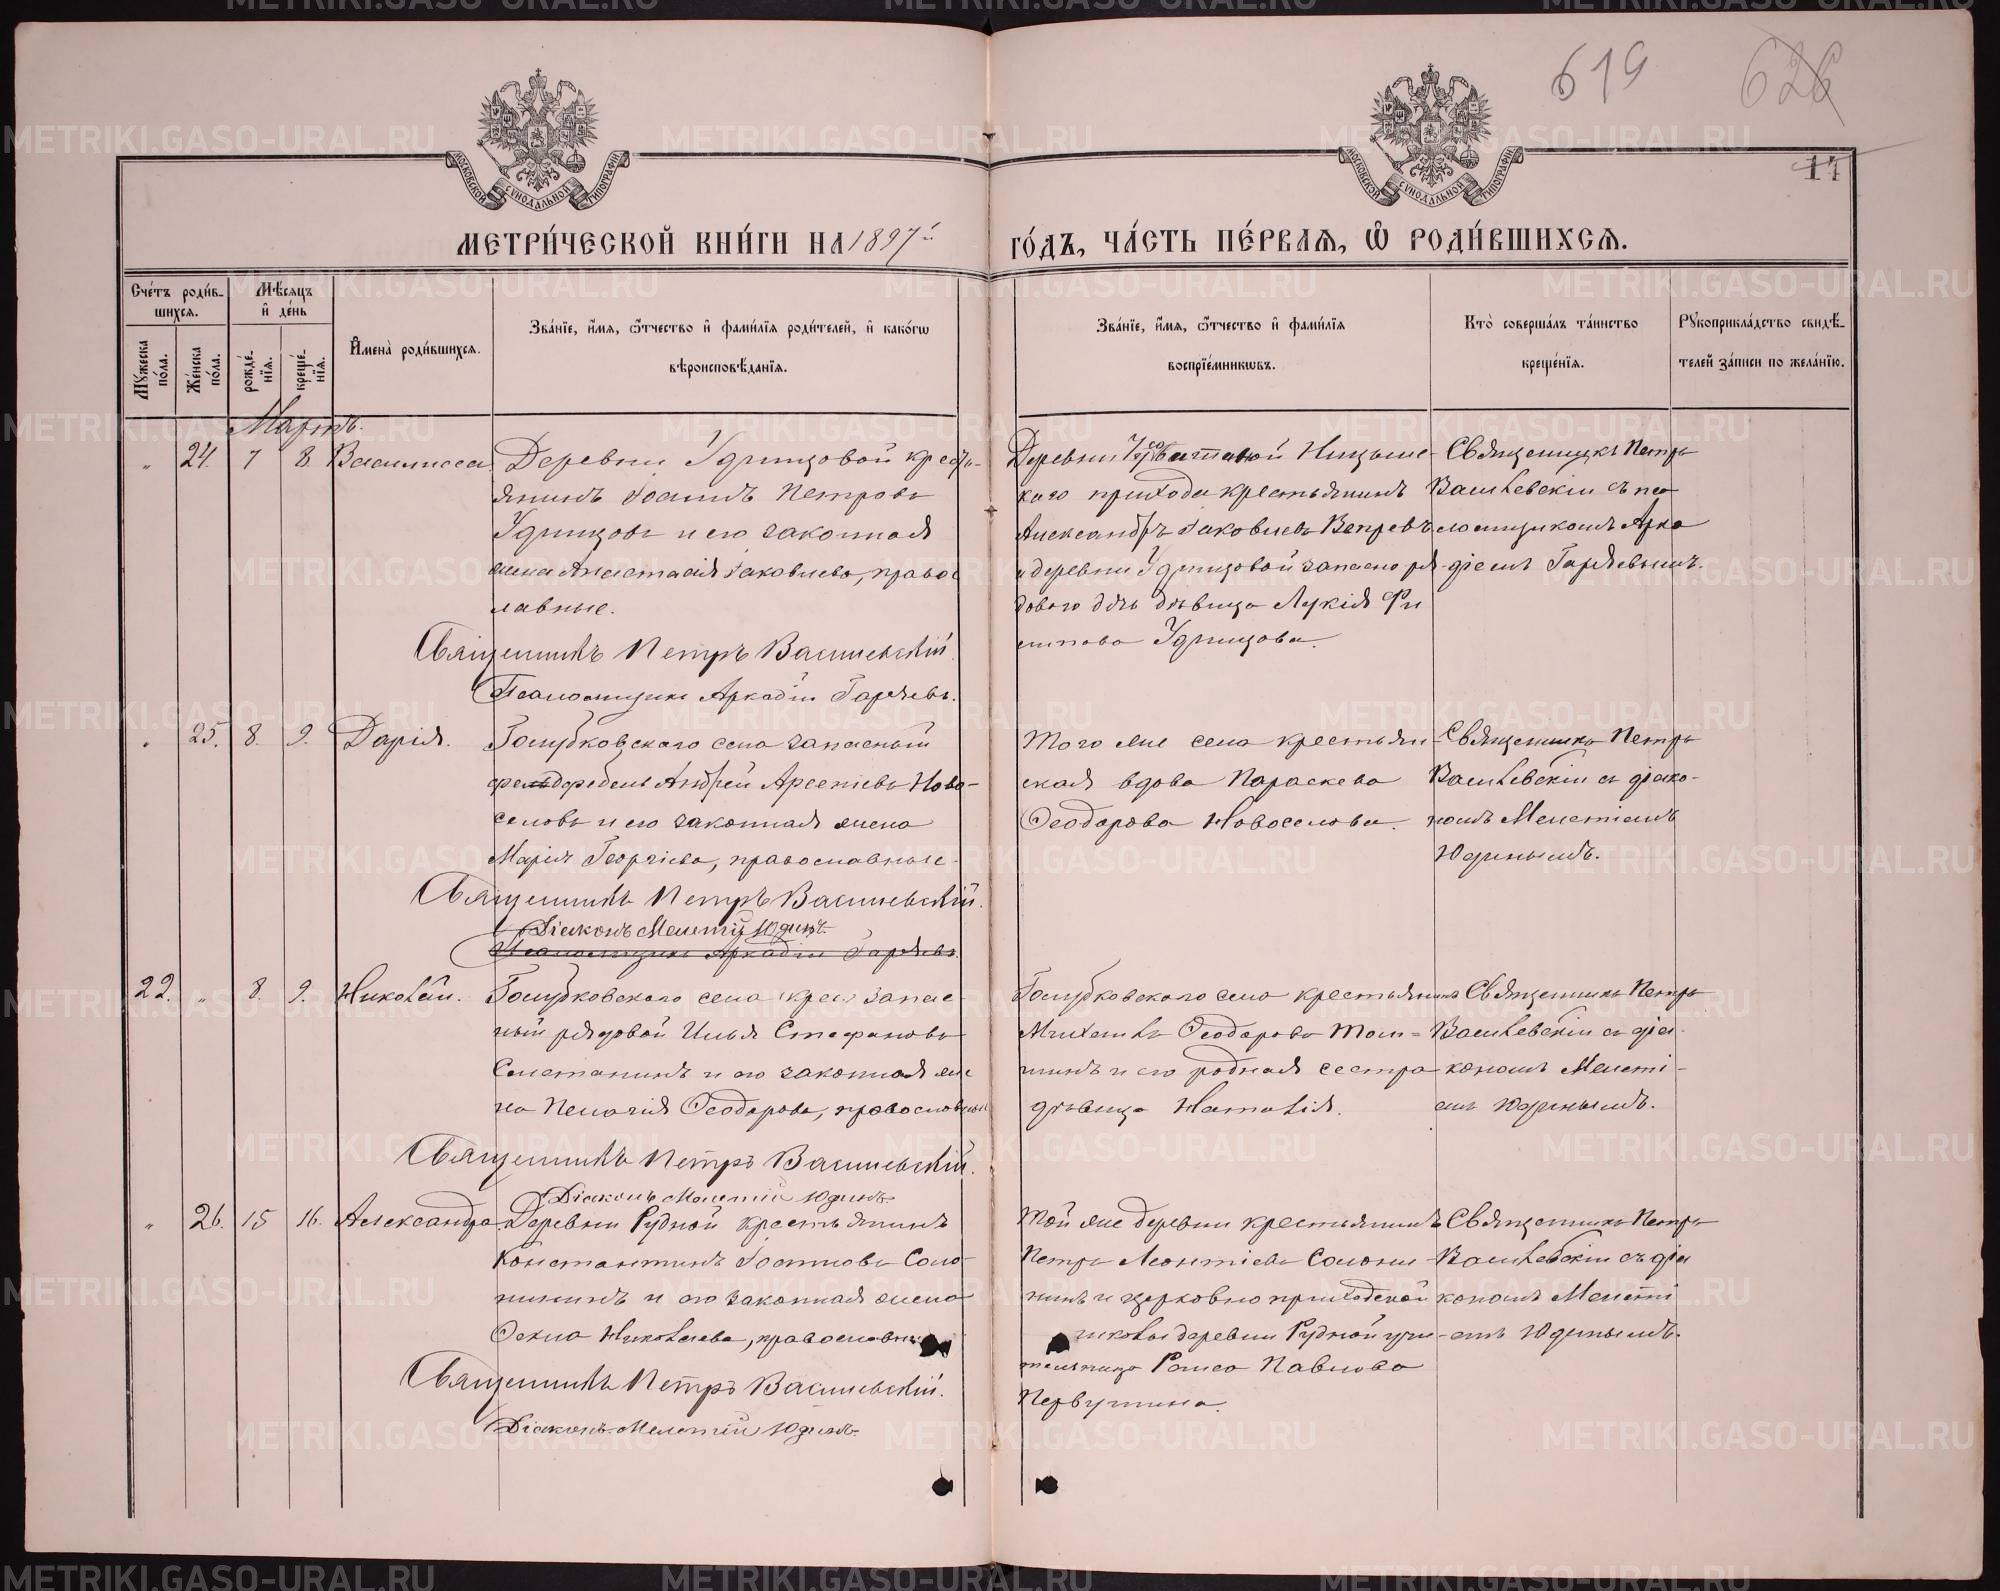 619
626
17
МОСКОВСКОЙ СУНОДАЛЬНОЙ ТИПОГРАФІИ
МОСКОВСКОЙ СУНОДАЛЬНОЙ ТИПОГРАФІИ
МЕТРИ́ЧЕСКОЙ КНИ́ГИ НА 1897й
ГО́ДЪ, ЧА́СТЬ ПЕ́РВАѦ, Ѽ РОДИ́ВШИХСѦ.
Сче́тъ роди́в-
шихсѧ.
Мѣ́сѧцъ
и҆ де́нь
Мꙋ́жеска по́ла.
Же́нска по́ла.
рожде́нїѧ.
креще́нїѧ.
И҆мена̀ роди́вшихсѧ.
Зва́нїе, и҆́мѧ, ѻ҆́тчество и҆ фами́лїѧ роди́телей, и҆ како́гѡ
вѣроисповѣ́данїѧ.
Зва́нїе, и҆́мѧ, ѻ҆́тчество и҆ фами́лїѧ
воспрїе́мникѡвъ.
Кто̀ соверша́лъ та́инство
креще́нїѧ.
Рꙋкоприкла́дство свидѣ́-
телей за́писи по жела́нїю.
Мартъ.
" 24. 7 8 Василисса
Деревни Удинцовой кресть-
янинъ Іоаннъ Петровъ
Удинцовъ и его законная
жена Анастасія Іаковлева, правос
лавные.
Священникъ Петръ Василевскій.
Псаломщикъ Аркадій Гаряевъ.
Деревни Ницынс-
каго прихода крестьянинъ
Александръ Іаковлевъ Вепревъ
и деревни Удинцовой запасно ря-
дового дочь дѣвица Лукія Фи
липпова Удинцова.
Священникъ Петръ
Василевскій съ пса
ломщикомъ Арка
діемъ Гаряевымъ.
" 25. 8. 9. Дарія.
Голубковскаго села запасный
фельдфебель Андрей Арсеніевъ Ново-
селовъ и его законная жена
Марія Георгіева, православные.
Священникъ Петръ Василевскій.
Діаконъ Мелетій Юдинъ.
Псаломщикъ Аркадій Гаряевъ.
Того же села крестьян-
ская вдова Параскева
Ѳеодорова Новоселова.
Священникъ Петръ
Василевскій съ діако-
номъ Мелетіемъ
Юдинымъ.
22. " 8. 9. Николай.
Голубковскаго села (крес) запас-
ный рядовой Илья Стефановъ
Сметанинъ и его законная же
на Пелагія Ѳеодорова, православные
Священникъ Петръ Василевскій.
Діаконъ Мелетій Юдинъ.
Голубковскаго села крестьянинъ
Михаилъ Ѳеодоровъ
и его родная сестра
дѣвица Наталія.
Священникъ Петръ
Василевскій съ діа-
кономъ Мелеті-
емъ Юдинымъ.
" 26. 15 16. Александра
Деревни Рудной крестьянинъ
Константинъ Іоанновъ Соло-
нининъ и его законная жена
Ѳекла Николаева, православн
Священникъ Петръ Василевскій.
Діаконъ Мелетій Юдинъ.
Той же деревни крестьянинъ
Петръ Леонтіевъ Солони-
нинъ и церковно приходской
школы деревни Рудной учи-
тельница Раиса Павлова
Первушина.
Священникъ Петръ
Василевскій съ діа
кономъ Мелеті
емъ Юдинымъ.
METRIKI.GASO-URAL.RU